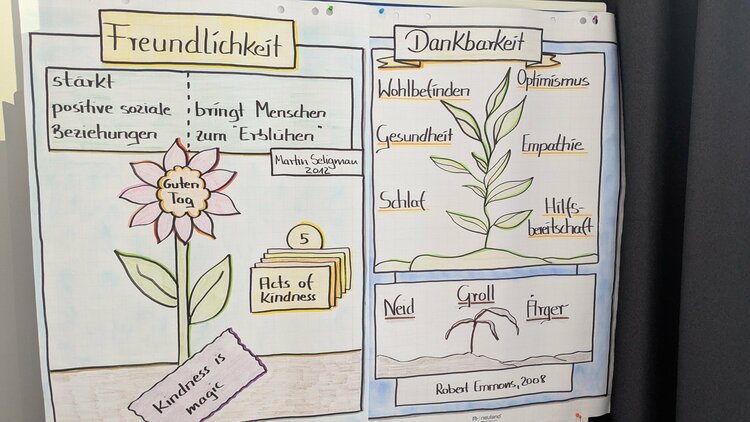 Freundlichkeit
stärkt
positive soziale
Beziehungen
bringt Menschen
zum "Erblühen"
Martin Seligman
2012
Guten
Tag
5
Acts of
Kindness
Kindness is
magic
Dankbarkeit
Wohlbefinden
Optimismus
Gesundheit
Empathie
Schlaf
Hilfs-
bereitschaft
Neid
Groll
Ärger
Robert Emmons, 2008
neuland